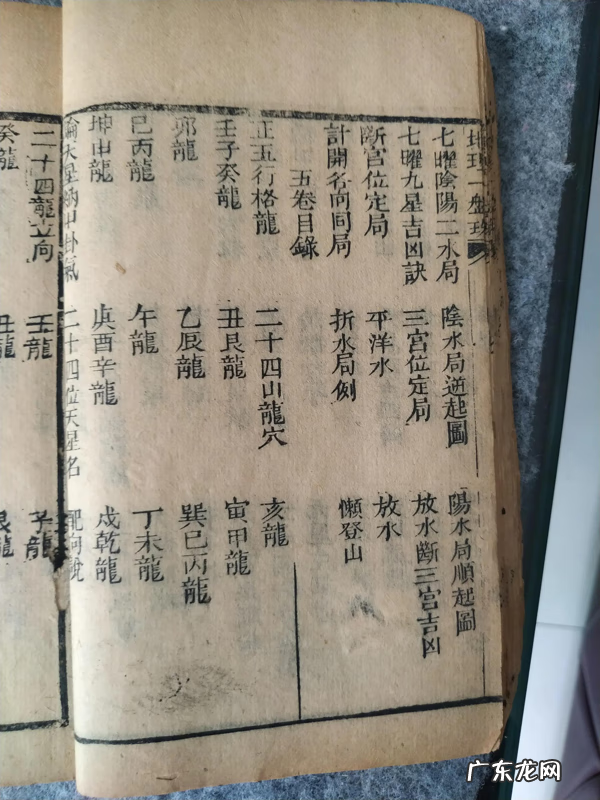 地理一盤珠
七曜陰陽二水局 陰水局逆起圖 陽水局順起圖
七曜九星吉凶訣 三宮位定局 放水斷三宮吉凶
斷宮位定局 平洋水 放水
計開各向同局 折水局例 懶登山
五卷目錄
正五行格龍 二十四山龍穴 亥龍
壬子癸龍 丑艮龍 寅甲龍
卯龍 乙辰龍 巽巳丙龍
巳丙龍 午龍 丁未龍
坤申龍 庚酉辛龍 戌乾龍
論天星納甲卦氣 二十四位天星名 配向說
二十四龍立向 壬龍 子龍
癸龍 丑龍 艮龍
广东龙网